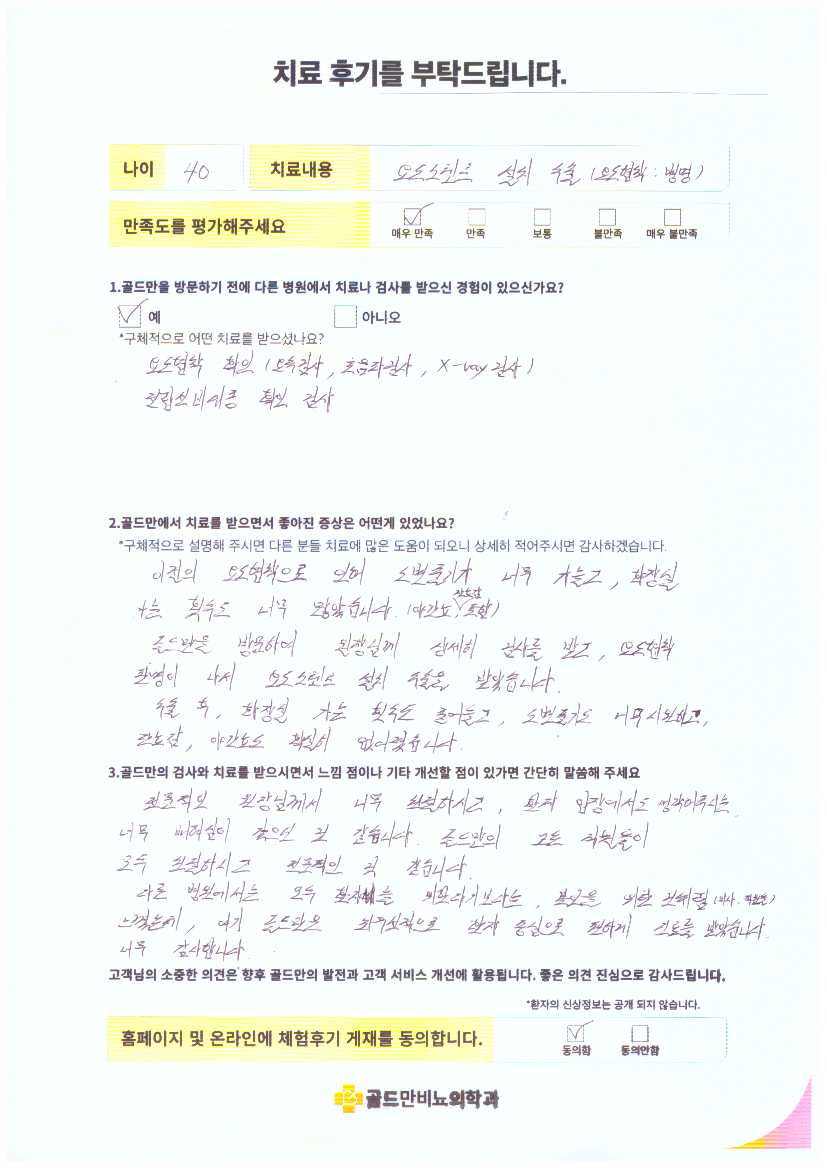 치료 후기를 부탁드립니다.
나이 40 치료내용 요도스텐트 설치 수술 (요도협착 : 병명)
만족도를 평가해주세요 매우 만족 만족 보통 불만족 매우 불만족
1.골드만을 방문하기 전에 다른 병원에서 치료나 검사를 받으신 경험이 있으신가요?
예 아니오
*구체적으로 어떤 치료를 받으셨나요?
요도협착 확인 (요속검사, 초음파검사, X-ray 검사)
전립선비대증 확인 검사
2.골드만에서 치료를 받으면서 좋아진 증상은 어떤게 있었나요?
*구체적으로 설명해 주시면 다른 분들 치료에 많은 도움이 되오니 상세히 적어주시면 감사하겠습니다.
이전의 요도협착으로 인해 소변줄기가 너무 가늘고, 화장실
가는 횟수도 너무 많았습니다. (야간뇨, 잔뇨감 포함)
골드만을 방문하여 원장님께 상세히 검사를 받고, 요도협착
판명이 나서 요도스텐트 설치 수술을 받았습니다.
수술 후, 화장실 가는 횟수도 줄어들고, 소변줄기도 너무 시원하고,
잔뇨감, 야간뇨도 확실히 없어졌습니다.
3.골드만의 검사와 치료를 받으시면서 느낌 점이나 기타 개선할 점이 있가면 간단히 말씀해 주세요
전문적인 원장님께서 너무 친절하시고, 환자 입장에서도 생각해주시는
너무 배려심이 깊으신 것 같습니다. 골드만의 모든 직원들이
모두 친절하시고 전문적인 것 같습니다.
다른 병원에서는 모두 환자를 위한다기보다는, 본인을 위한
느꼈는데, 여기 골드만은 환자 중심으로 편하게 진료를 받았습니다.
너무 감사합니다.
고객님의 소중한 의견은 향후 골드만의 발전과 고객 서비스 개선에 활용됩니다. 좋은 의견 진심으로 감사드립니다.
*환자의 신상정보는 공개 되지 않습니다.
홈페이지 및 온라인에 체험후기 게재를 동의합니다. 동의함 동의안함
골드만비뇨의학과